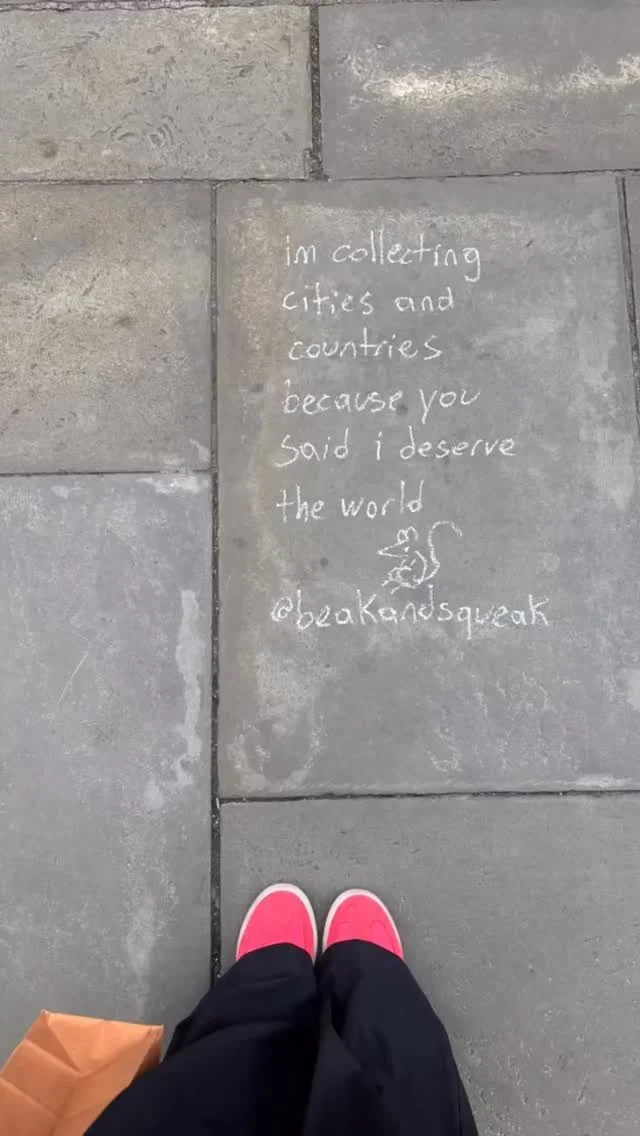 im collecting
cities and
countries
because you
said i deserve
the world
@beakandsqueak